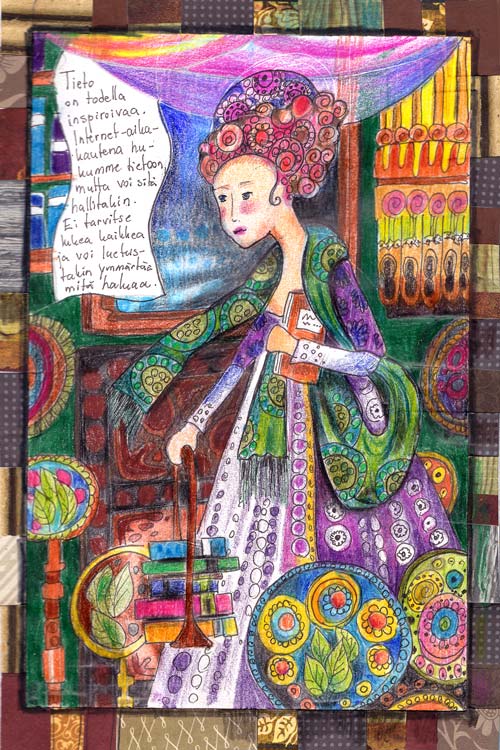 Tieto
on todella
inspiroivaa.
Internet-aika-
kautena hu-
kumme tietoon,
mutta voi sitä
hallitakin.
Ei tarvitse
lukea kaikkea
ja voi luetus-
takin ymmärtää
mitä haluaa.